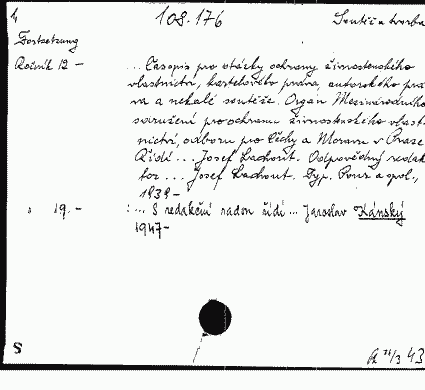 4 108.176 Soutěž a tvorba
Fortsetzung
Ročník 12 – ... Časopis pro otázky ochrany živnostenského
vlastnictví, kartelového práva, autorského prá-
va a nekalé soutěže. Orgán Mezinárodního
sdružení pro ochranu živnostenského vlast-
nictví, odboru pro Čechy a Moravu v Praze
Řídí ... Josef Lachout. Odpovědný redak-
tor ... Josef Lachout. Typ. Pour a spol.,
1939–
" 19. – : ... S redakční radou řídí ... Jaroslav Kánský
1947–
S
43